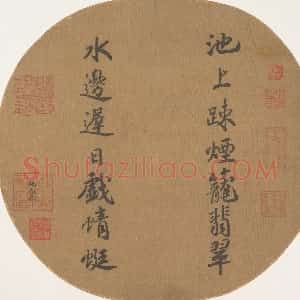 池上疎煙籠翡翠
水邊遲日戲蜻蜓
Shufaziliao.com